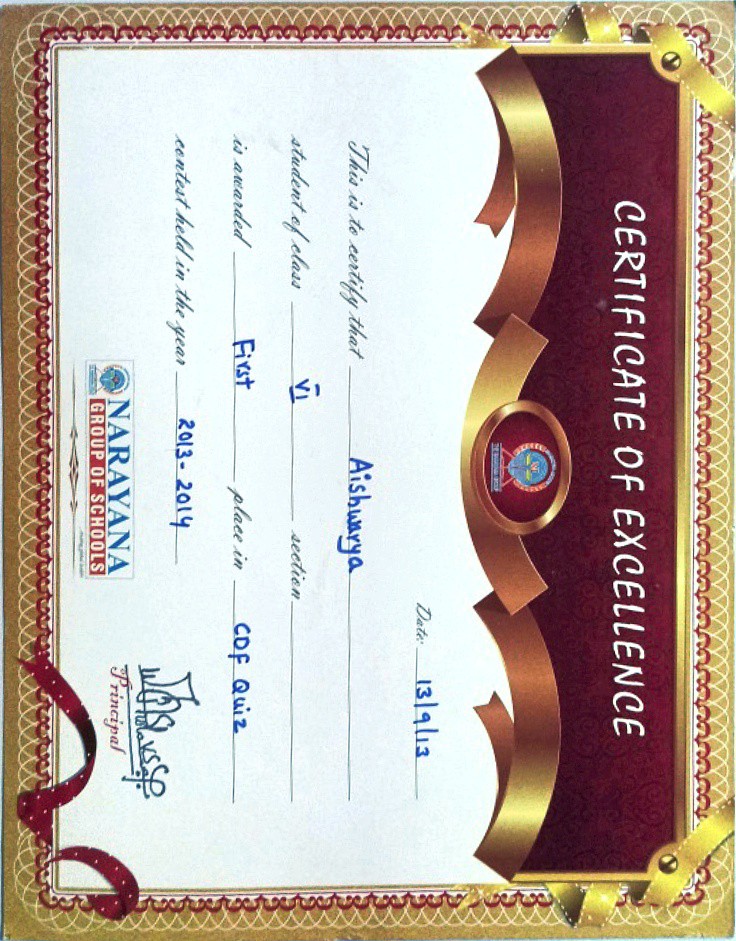 CERTIFICATE OF EXCELLENCE
THE NARAYANA GROUP
Date: 13/9/13
This is to certify that Aishwarya
student of class VI section
is awarded First place in CDF Quiz
contest held in the year 2013-2014
Principal
NARAYANA
GROUP OF SCHOOLS